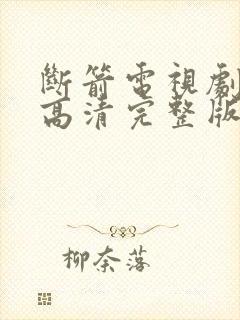 斷箭電視劇
高清完整版
柳奈落